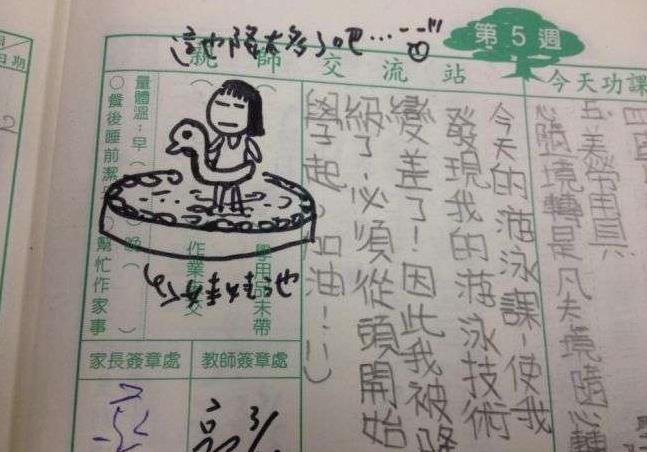 這也降太多了吧…
第5週
親師交流站
今天功課
日期
五、美勞用具
心隨境轉是凡夫境隨心轉
今天的游泳課，使我
發現我的游泳技術
變差了！因此我被降
級了，必須從頭開始
學起。加油！
量體溫：早（
晚（
）
○餐後睡前潔
○幫忙作家事
學用品未帶
作業
交
家長簽章處
教師簽章處